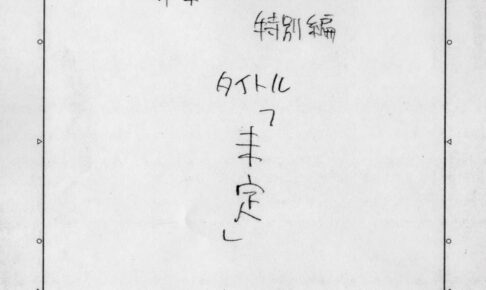 特別編
タイトル
「未定」